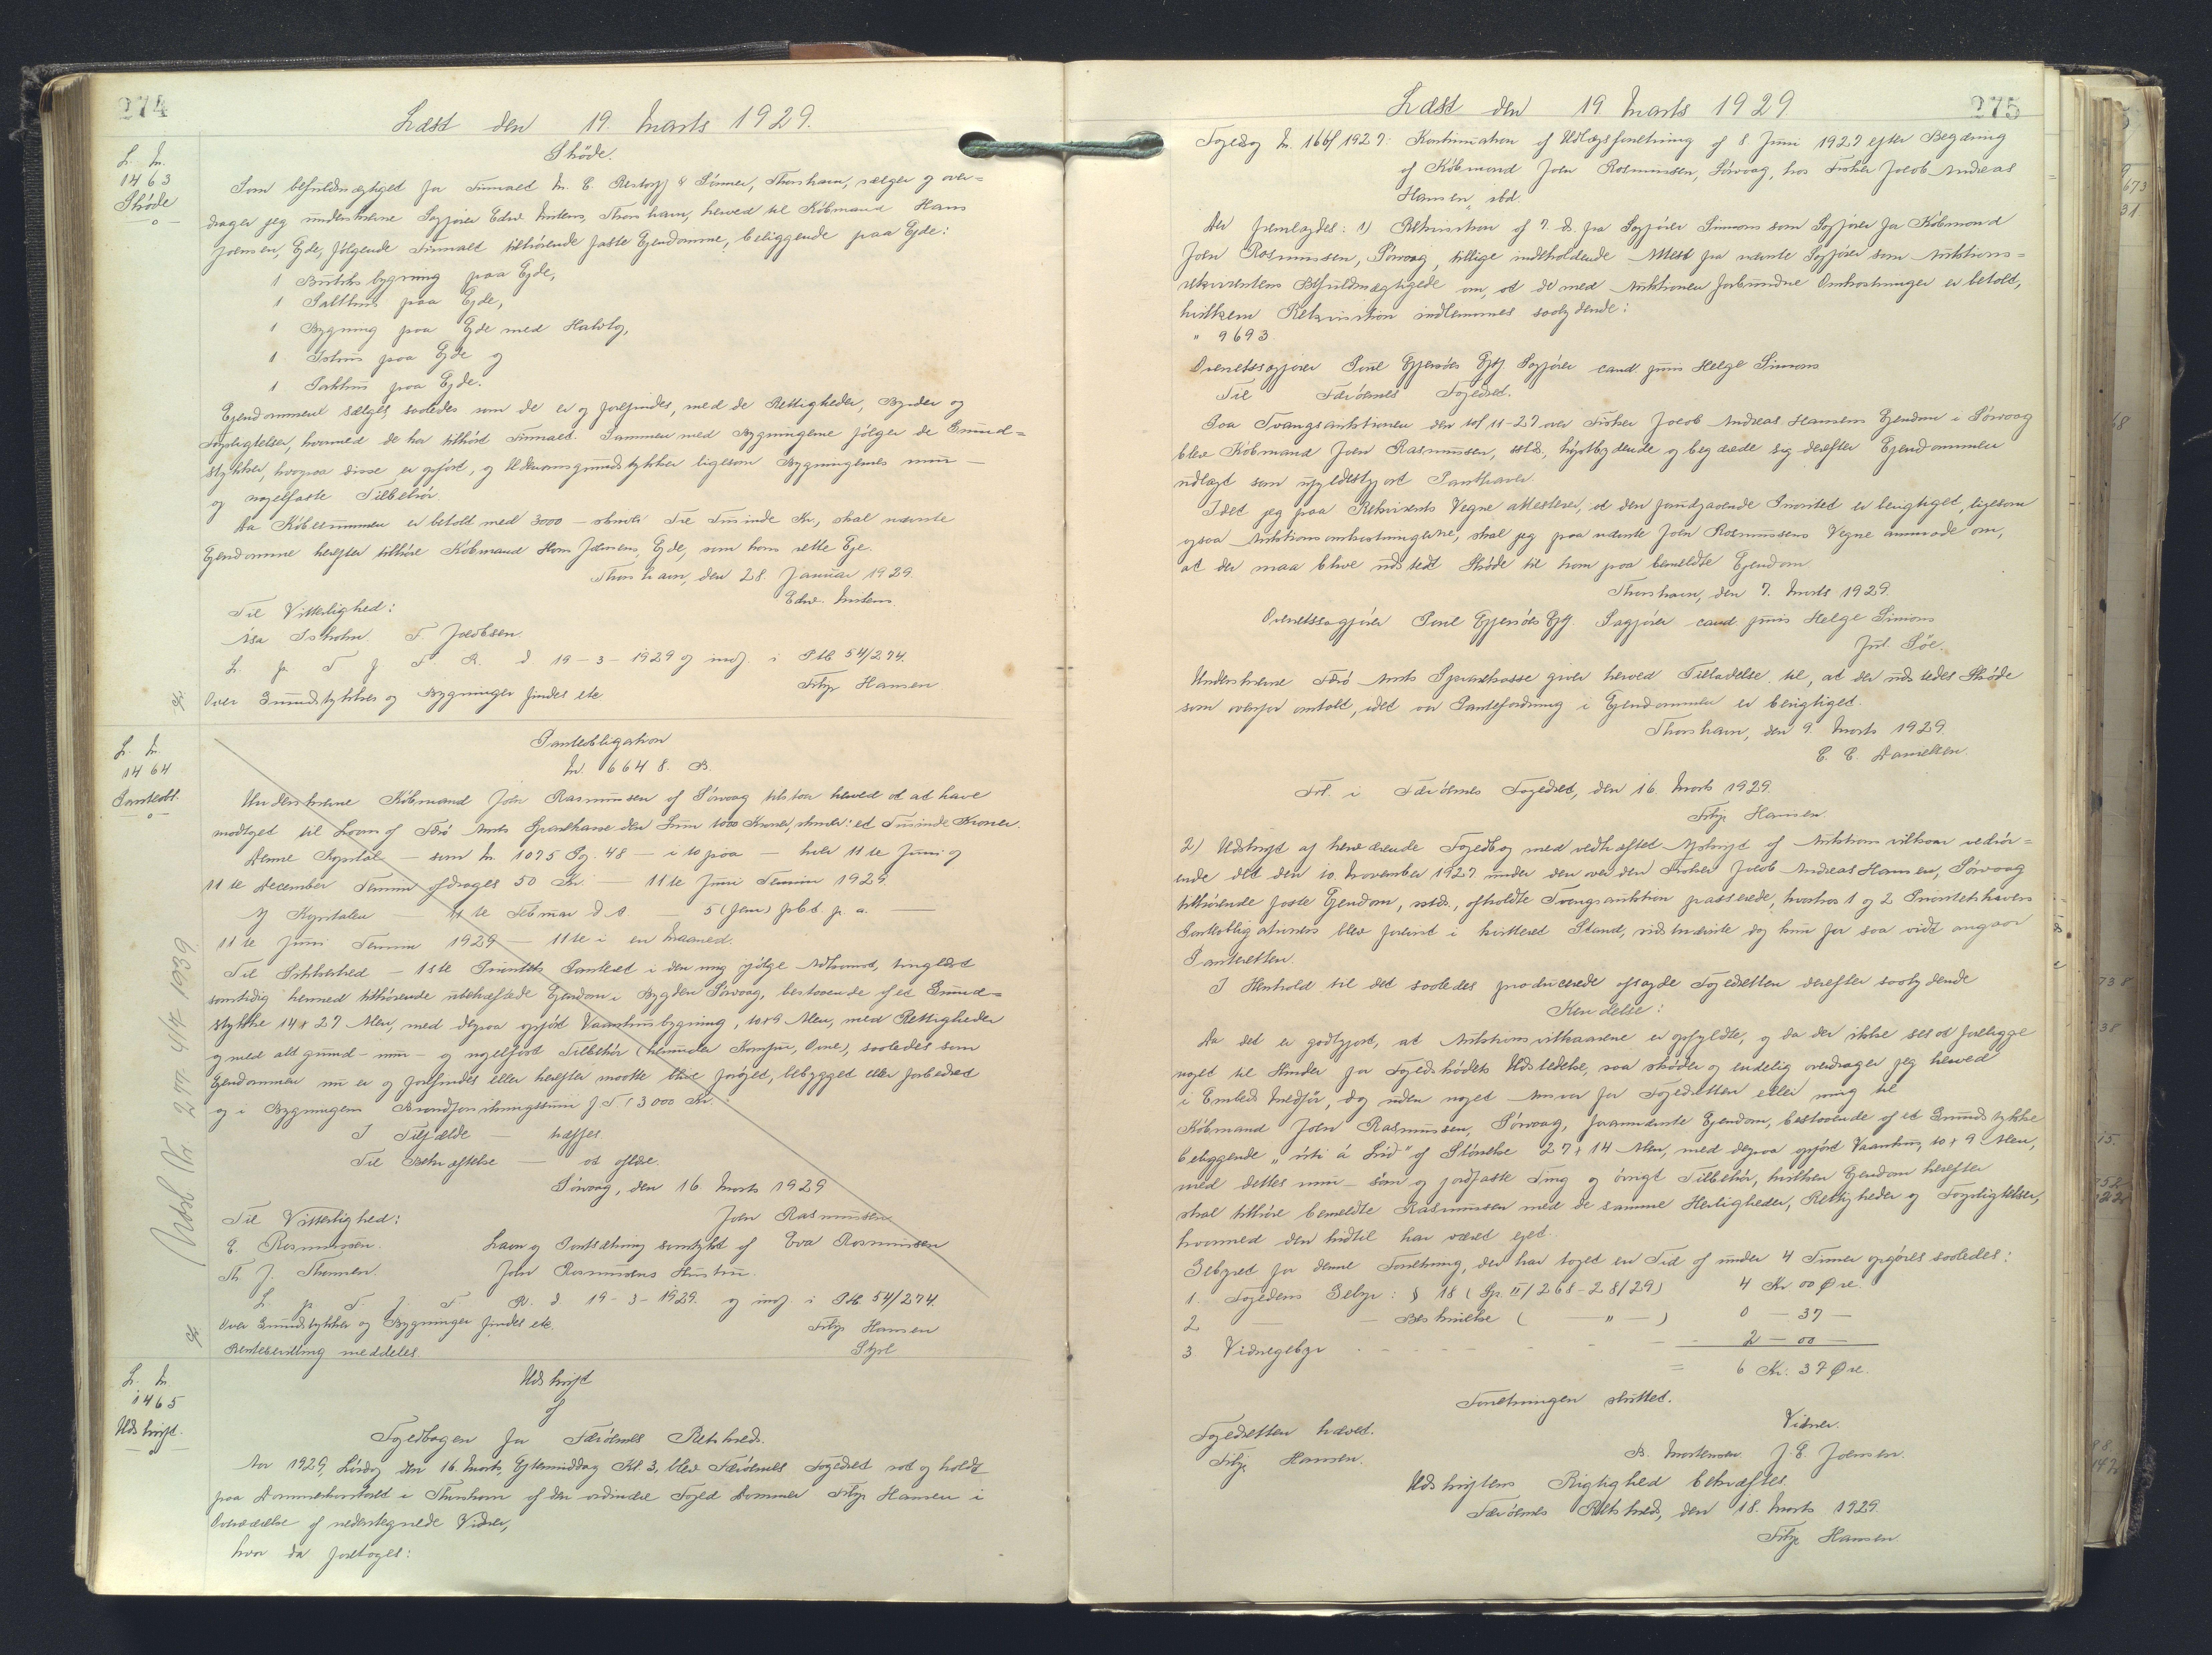 274
Læst den 19. Marts 1929.
L. Nr.
1463
Skøde
Skøde.
Som befuldmægtiget for Firmaet M. C. Restorff & Sønner, Thorshavn, sælger og over=
drager jeg underskrevne Sagfører Edw. Mitens, Thorshavn, herved til Købmand Hans
Joensen, Ejde, følgende Firmaet tilhørende faste Ejendomme, beliggende paa Ejde:
1 Butiksbygning paa Ejde,
1 Salthus paa Ejde,
1 Bygning paa Ejde med Halvtag,
1 Ishus paa Ejde og
1 Pakhus paa Ejde.
Ejendommene sælges saaledes som de er og forefindes, med de Rettigheder, Byrder og
Forpligtelser, hvormed de har tilhørt Firmaet. Sammen med Bygningerne følger de Grund=
stykker, hvorpaa disse er opført, og Udenomsgrundstykker ligesom Bygningernes mur-
og nagelfaste Tilbehør.
Da Købesummen er betalt med 3000 - skriver Tre Tusinde Kr., skal nævnte
Ejendomme herefter tilhøre Købmand Hans Joensens, Ejde, som hans rette Eje.
Thorshavn, den 28. Januar 1929.
Edw. Mitens.
Til Vitterlighed:
Isa Isholm. F. Jacobsen.
L. p. T. f. F. R. d. 19-3-1929 og indf. i P.B 54/274.
Filip Hansen
Over Grundstykker og Bygninger findes etc
L. Nr.
1464
Panteobl.
Panteobligation
Nr. 6648. B.
Underskrevne Købmand Joen Rasmussen af Sørvaag tilstaar herved at have
modtaget til Laans af Færø Amts Sparekasse den Sum 1000 Kroner, skriver: et Tusinde Kroner.
Denne Kapital — som Nr. 1075 Pg. 48 — i to paa — hver 11te Juni og
11te December Termin afdrages 50 Kr. — 11te Juni Termin 1929.
Af Kapitalen — 11te Februar d. A. — 5 (fem) pCt p. a. —
11te Juni Termin 1929 — 11te i en Maaned.
Til Sikkerhed — 1ste Prioritets Panteret i den mig ifølge Adkomst, tinglæst
samtidig hermed tilhørende ubehæftede Ejendom i Bygden Sørvaag, bestaaende af et Grund=
stykke 14 x 27 Alen, med derpaa opført Vaaningsbygning, 10x9 Alen, med Rettigheder
og med alt grund- mur- og nagelfast Tilbehør (herunder Komfur, Ovne), saaledes som
Ejendommen nu er og forefindes eller herefter maatte blive forøget, bebygget eller forbedret
og i Bygningens Brandforsikringssum f. T. 13000 Kr.
I Tilfælde — træffes.
Til Bekræftelse — at aflæse.
Sørvaag, den 16 Marts 1929
Joen Rasmussen
Til Vitterlighed:
E. Rasmussen. Laan og Pantsætning samtykt af Eva Rasmussen
Th. J. Thomsen. Joen Rasmussens Hustru.
L. p. T. f. F. R. d 19-3-1929. og indf i P.B 54/274.
Over Grundstykker og Bygninger findes etc. Filip Hansen
Rentebevilling meddeles Stpl
Udsl. Nr. 277 4/7 1939
L. Nr.
1465
Udskrift.
Udskrift
af
Fogedbogen for Færøernes Retskreds.
Aar 1929, Lørdag den 16. Marts, Eftermiddag Kl. 3, blev Færøernes Fogedret sat og holdt
paa Dommerkontoret i Thorshavn af den ordinære Foged Dommer Filip Hansen i
Overværelse af nedentegnede Vidner,
hvor da foretoges:
275
Læst den 19 Marts 1929
Fogedsag Nr. 166/1927: Kontinuation af Udlægsforretning af 8 Juni 1927 efter Begæring
af Købmand Joen Rasmussen, Sørvaag, hos Fisker Jacob Andreas
Hansen, ibd.
Der fremlagdes: 1) Rekvisition af 7. ds. fra Sagfører Simons som Sagfører for Købmand
Joen Rasmussen, Sørvaag, tillige indeholdende Attest fra nævnte Sagfører som Auktions=
rekvirentens Befuldmægtigede om, at de med Auktionen forbundne Omkostninger er betalt,
hvilken Rekvisition indlemmes saalydende:
" 9693
Overretssagfører Poul Ejersøes Eftf. Sagfører cand juris Helge Simons
Til Færøernes Fogedret.
Paa Tvangsauktionen den 10/11-27 over Fisker Jacob Andreas Hansens Ejendom i Sørvaag
blev Købmand Joen Rasmussen, sstds., højstbydende og begærede sig derefter Ejendommen
udlagt som ufyldestgjort Panthaver.
Idet jeg paa Rekvirents Vegne attesterer, at den foranstaaende Prioritet er berigtiget, ligesom
ogsaa Auktionsomkostningerne, skal jeg paa nævnte Joen Rasmussens Vegne anmode om,
at der maa blive udstedt Skøde til ham paa bemeldte Ejendom.
Thorshavn, den 7. Marts 1929.
Overretssagfører Poul Ejersøes Eftf. Sagfører cand. juris Helge Simons
Underskrevne Færø Amts Sparekasse giver herved Tilladelse til, at der udstedes Skøde
som ovenfor omtalt, idet vor Pantefordring i Ejendommen er berigtiget.
Thorshavn, den 9. Marts 1929.
C. C. Danielsen.
Frl. i Færøernes Fogedret, den 16. Marts 1929.
Filip Hansen.
2) Udskrift af herværende Fogedbog med vedhæftet Afskrift af Auktionsvilkaar vedrør=
ende det den 10. November 1927 under den over den Fisker Jacob Andreas Hansen, Sørvaag
tilhørende faste Ejendom, sstds., afholdte Tvangsauktion passerede, hvorhos 1 og 2 Prioritetshavers
Panteobligationers blev forevist i kvitteret Stand, sidstnævnte dog kun for saa vidt angaar
Panteretten.
I Henhold til det saaledes producerede afsagde Fogedretten derefter saalydende
Kendelse:
Da det er godtgjort, at Auktionsvilkaarene er opfyldte, og da der ikke ses at foreligge
noget til Hinder for Fogedskødets Udstedelse, saa skøder og endelig overdrager jeg herved
i Embeds Medfør, dog uden noget Ansvar for Fogedretten eller mig til
Købmand Joen Rasmussen, Sørvaag, forannævnte Ejendom, bestaaende af et Grundstykke
beliggende af Størrelse 27 x 14 Alen, med derpaa opført Vaanhus, 10 x 9 Alen,
med dettes mur- søm og jordfaste Ting og øvrigt Tilbehør, hvilken Ejendom herefter
skal tilhøre bemeldte Rasmussen med de samme Herligheder, Rettigheder og Forpligtelser,
hvormed den hidtil har været ejet.
Gebyret for denne Forretning, der har taget en Tid af under 4 Timer opgøres saaledes:
1. Fogedens Gebyr: § 18 (Sp. II/268-28/29) 4 Kr 00 Øre
2 — — Beskrivelse ( — " — ) 0 — 37 —
3 Vidnegebyr 2 — 00 —
= 6 Kr. 37 Øre.
Forretningen sluttet.
Fogedretten hævet. Vidner.
Filip Hansen. B. Mortensen J. E. Joensen.
Udskriftens Rigtighed bekræftes
Færøernes Retskreds, den 18. Marts 1929.
Filip Hansen.